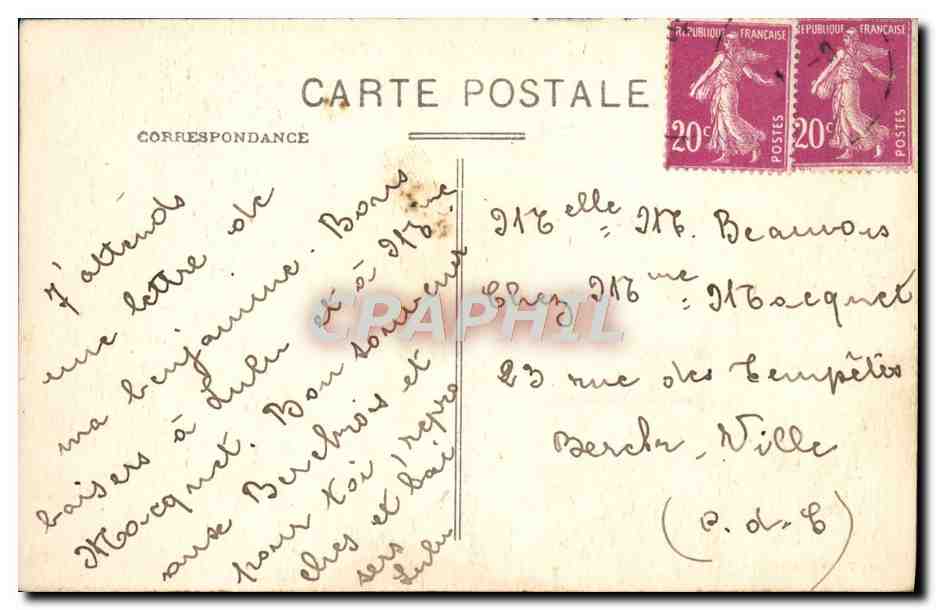 CARTE POSTALE
CORRESPONDANCE
REPUBLIQUE FRANÇAISE
20c
POSTES
REPUBLIQUE FRANÇAISE
20c
POSTES
J'attends
une lettre de
ma benjamine. Bons
baisers à Lulu et à Mme
Macquet. Bon souvenir
aux Berckois et
pour toi l'repro
ches et bai
sers
Lulu
Melle M. Beauvois
Chez Mme Macquet
23 rue des Tempêtes
Berck-Ville
(P.-d-C)
CPAPHIL